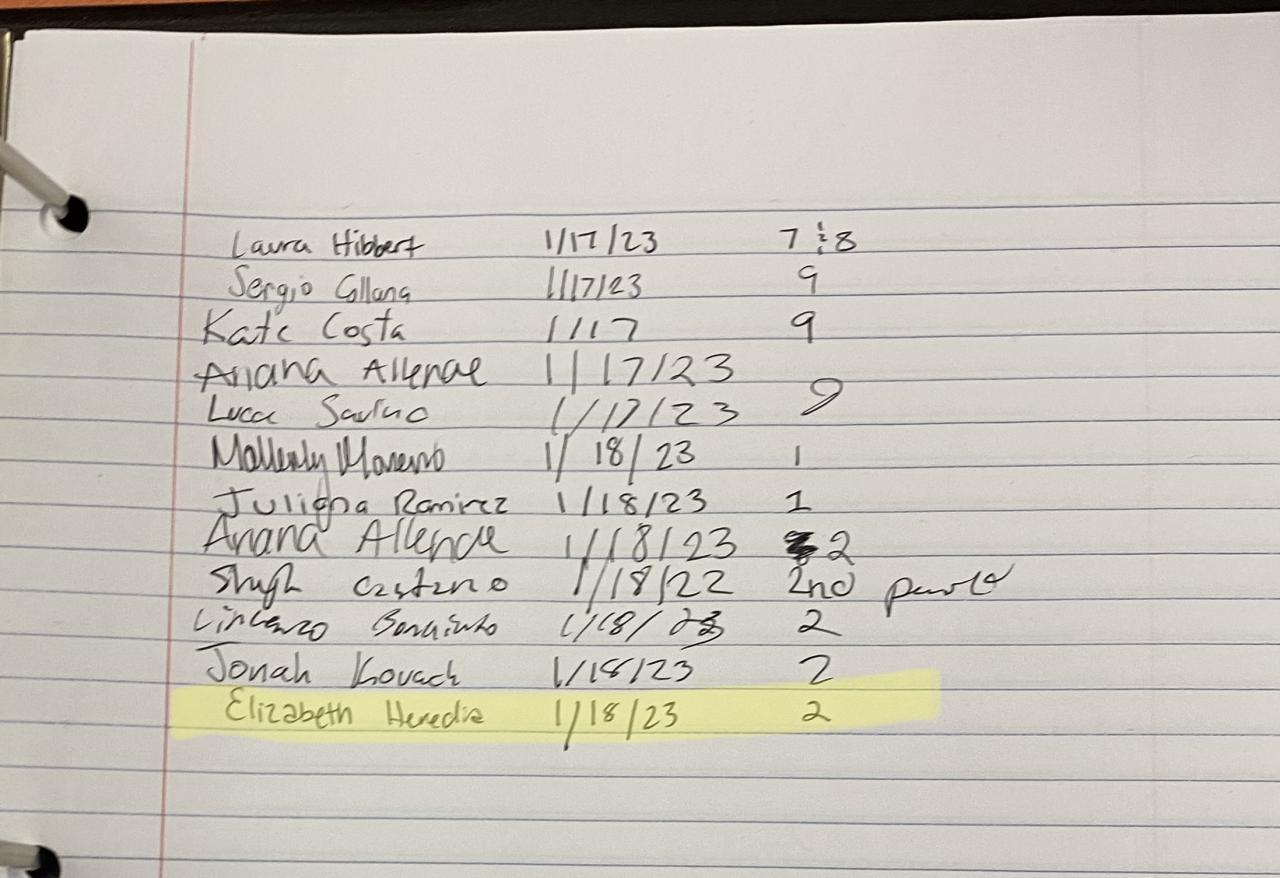 Laura Hibbert 1/17/23 7 & 8
Sergio Collana 1/17/23 9
Kate Costa 1/17 9
Ariana Allende 1/17/23
Luca Savino 1/17/23 9
Mallerly Moreno 1/18/23 1
Juliana Ramirez 1/18/23 1
Ariana Allende 1/18/23 2
1/18/22 2nd period
Vincenzo 1/18/23 2
Jonah Kovach 1/18/23 2
Elizabeth Heredia 1/18/23 2